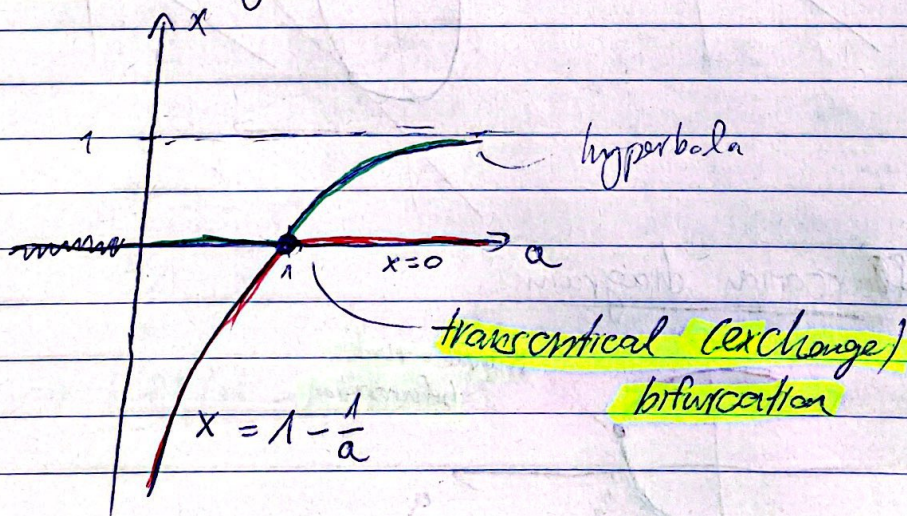 x
1
hyperbola
1
x=0
a
transcritical (exchange)
bifurcation
x = 1 - 1/a